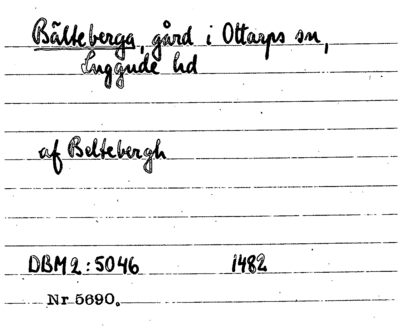 Bälteberga, gård i Ottarps sn,
Luggude hd
af Beltebergh
DBM 2:5046 1482
Nr 5690.